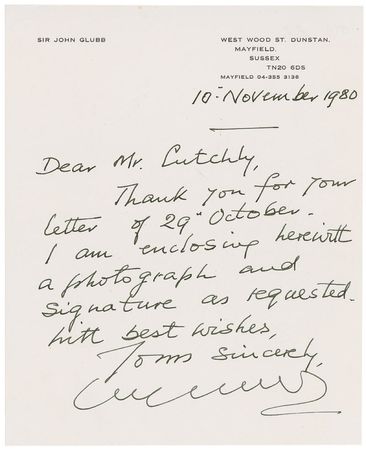 SIR JOHN GLUBB
WEST WOOD ST. DUNSTAN,
MAYFIELD,
SUSSEX
TN20 6DS
MAYFIELD 04-355 3136
10 November 1980
Dear Mr.
Thank you for your
letter of 29" October.
I am enclosing herewith
a photograph and
signature as requested.
With best wishes,
Yours sincerely,